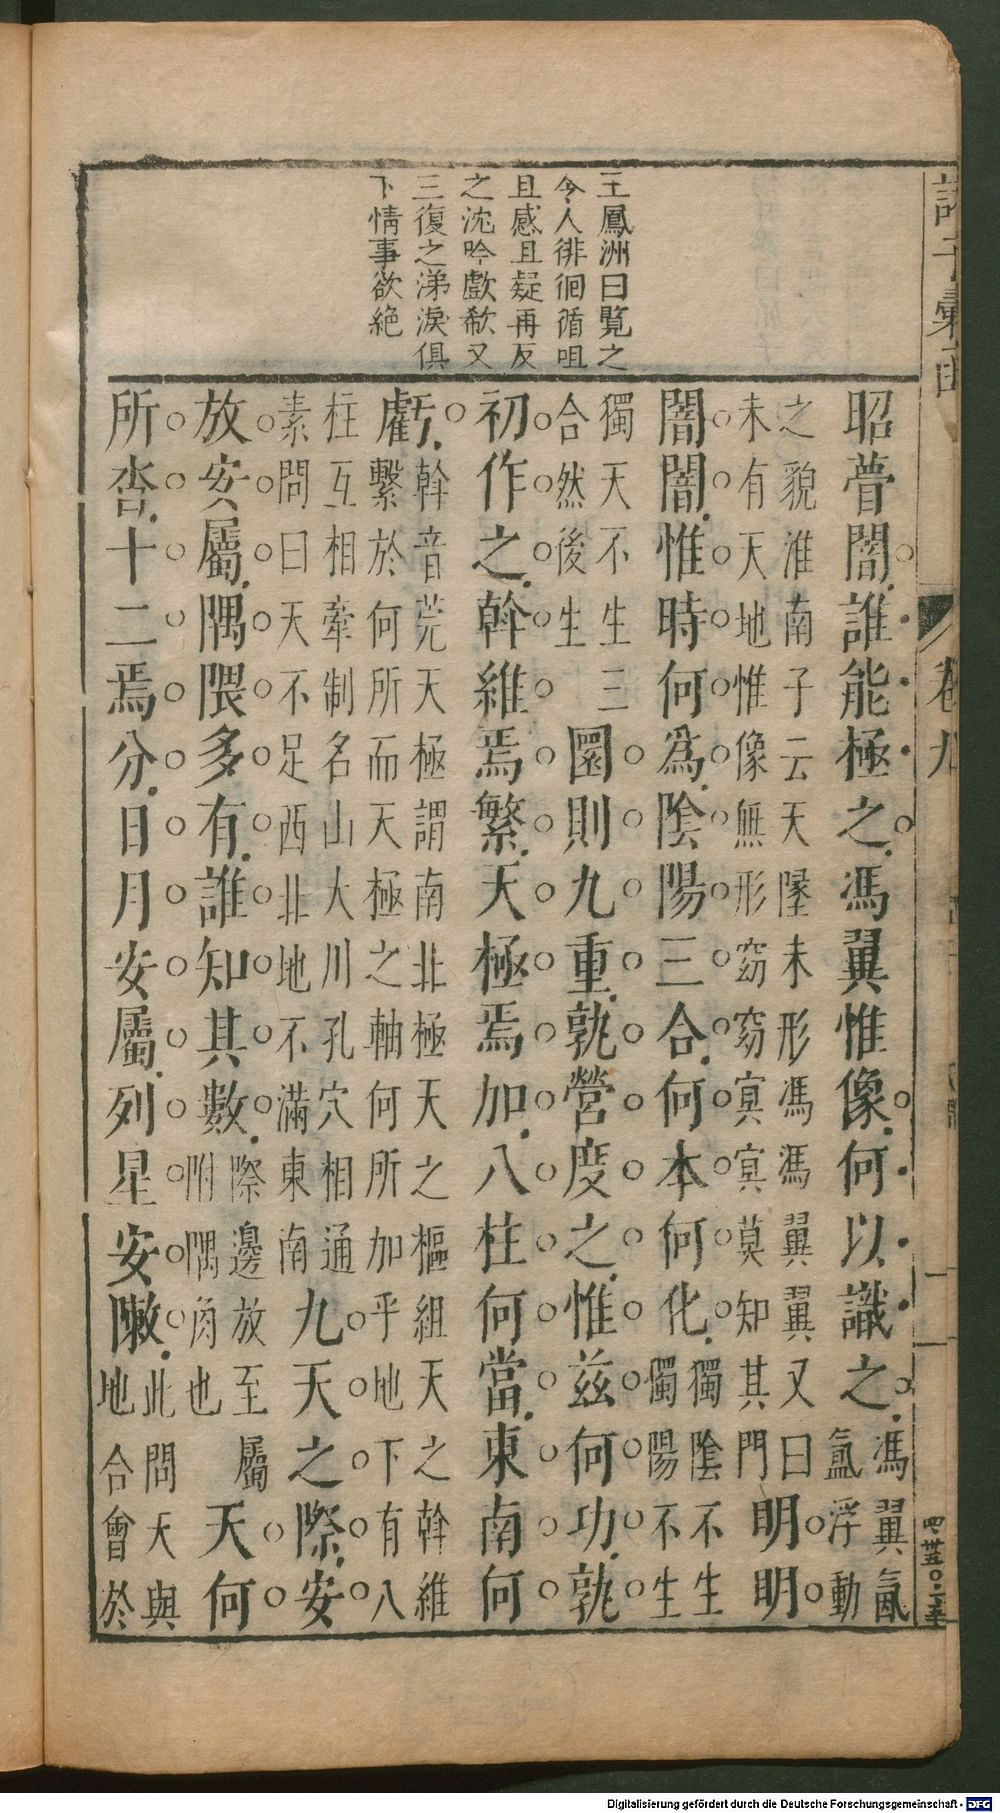 王鳳洲曰覧之
令人徘徊循咀
且感且疑再反
之沈吟歔欷又
三復之涕淚俱
下情事欲絶
昭瞢闇誰能極之馮翼惟像何以識之馮翼氤氳浮動
之貌淮南子云天墬未形馮馮翼翼又曰
未有天地惟像無形窈窈冥冥莫知其門明明
闇闇惟時何為陰陽三合何本何化獨陰不生獨陽不生
獨天不生三合然後生圜則九重孰營度之惟兹何功孰
初作之斡維焉繫天極焉加八柱何當東南何
虧斡音筦天極謂南北極天之樞紐天之斡維
繫於何所而天極之軸何所加乎地下有八
柱互相牽制名山大川孔穴相通
素問曰天不足西北地不滿東南九天之際安
放安屬隅隈多有誰知其數際邊放至屬附隅角也天何
所沓十二焉分日月安屬列星安敶此問天與地合會於
卷九
Digitalisierung gefördert durch die Deutsche Forschungsgemeinschaft - DFG